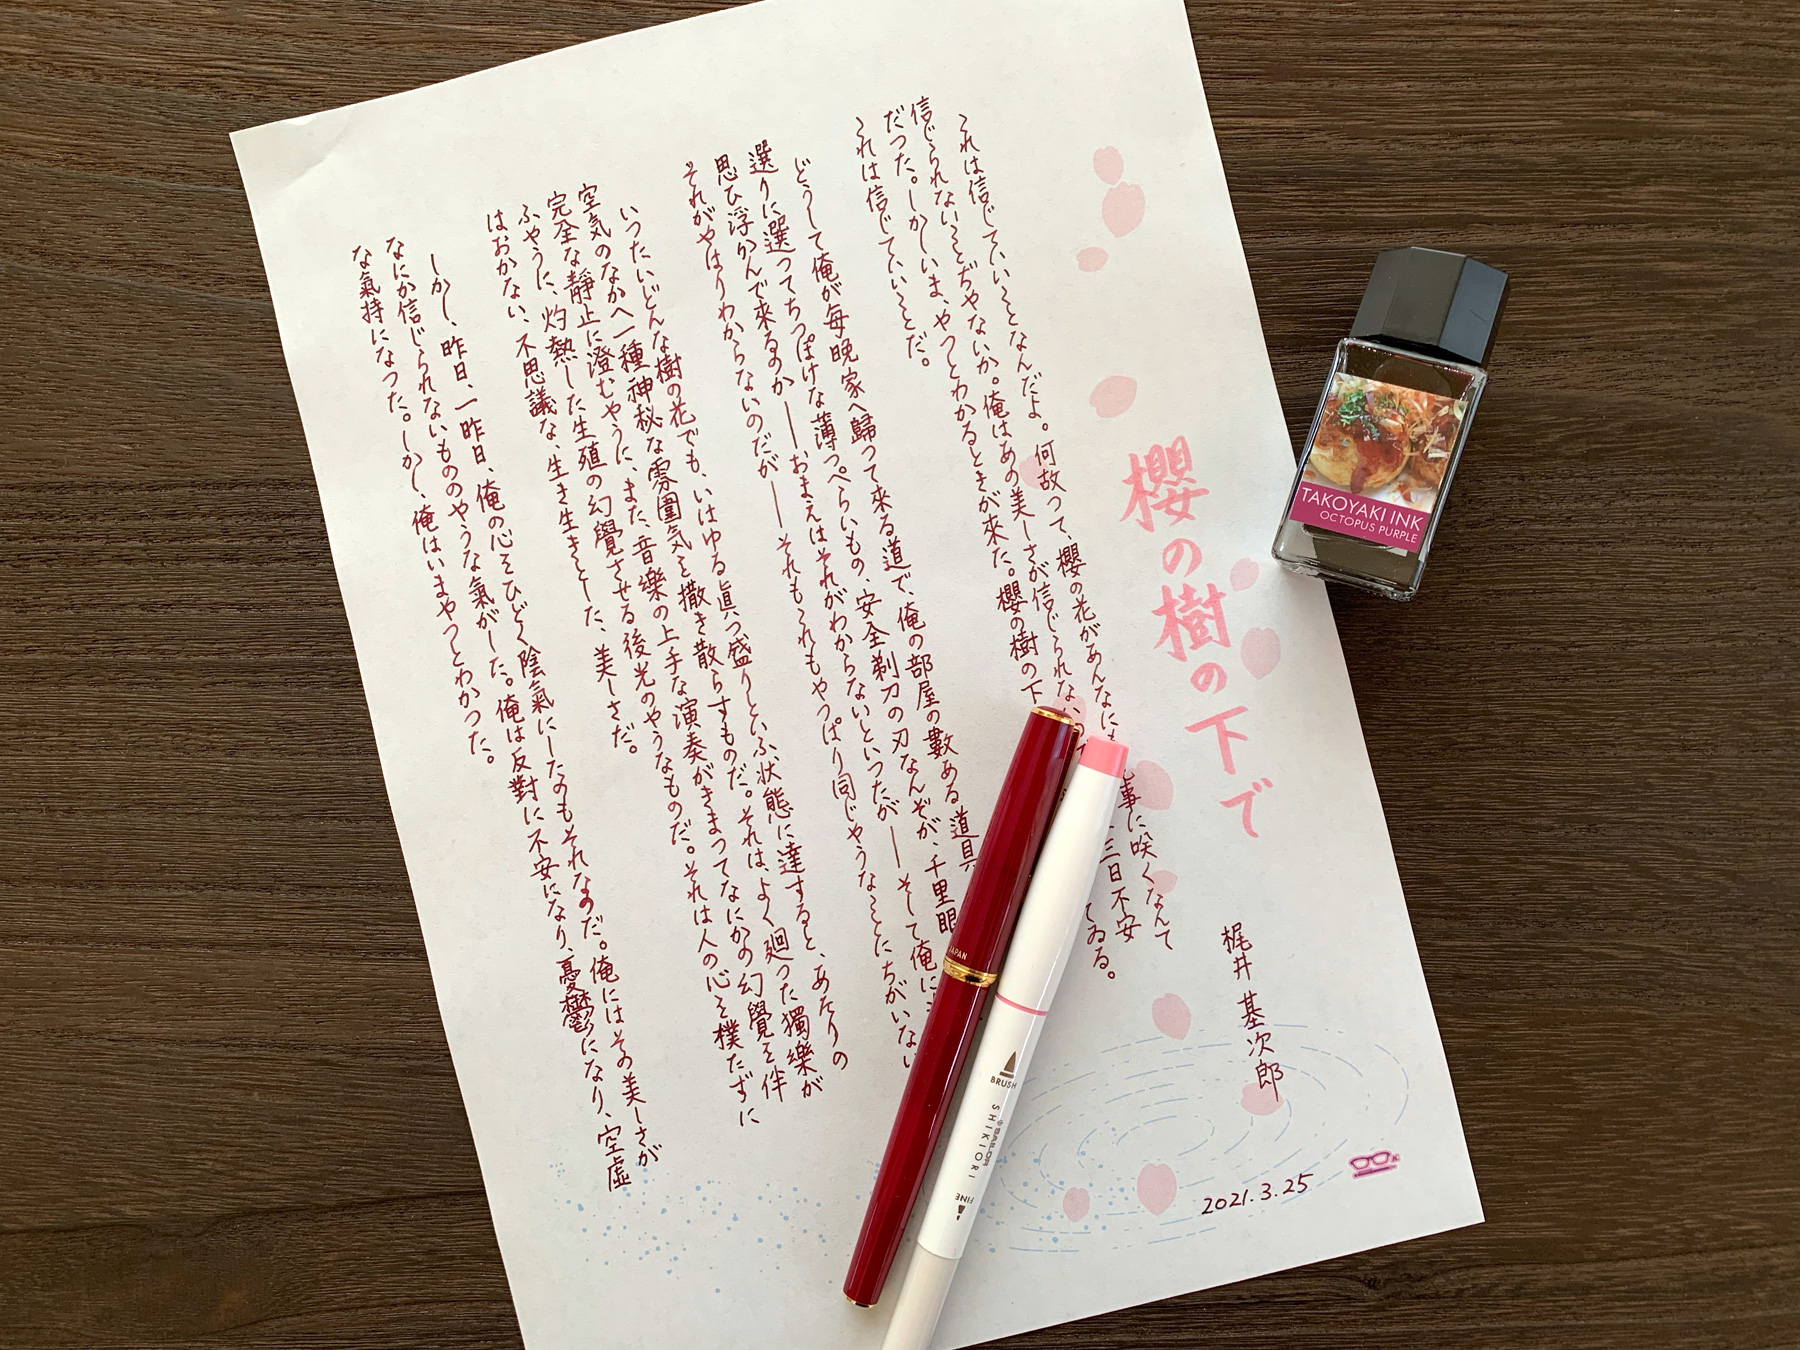 櫻の樹の下で
梶井 基次郎
これは信じていいことなんだよ。何故って、櫻の花があんなにも 事に咲くなんて
信じられないことぢやないか。俺はあの美しさが信じられない 三日不安
だつた。しかしいま、やつとわかるときが來た。櫻の樹の下 てゐる。
これは信じていいことだ。
どうして俺が毎晩家へ歸って來る道で、俺の部屋の數ある道具
選りに選ってちつぽけな薄っぺらいもの、安全剃刀の刃なんぞが、千里眼
思ひ浮かんで來るのか――おまえはそれがわからないといつたが――そして俺に
それがやはりわからないのだが――それもこれもやっぱり同じやうなことにちがいない
いつたいどんな樹の花でも、いはゆる眞つ盛りといふ状態に達すると、あたりの
空気のなかへ一種神秘な雰圍気を撒き散らすものだ。それは、よく廻つた獨樂が
完全な靜止に澄むやうに、また、音樂の上手な演奏がきまつてなにかの幻覺を伴
ふやうに、灼熱した生殖の幻覺させる後光のやうなものだ。それは人の心を撲たずに
はおかない、不思議な、生き生きとした、美しさだ。
しかし、昨日、一昨日、俺の心をひどく陰氣にしたのもそれなのだ。俺にはその美しさが
なにか信じられないもののやうな氣がした。俺は反對に不安になり、憂鬱になり、空虚
な氣持になつた。しかし、俺はいまやつとわかつた。
2021.3.25
TAKOYAKI INK
OCTOPUS PURPLE
JAPAN
BRUSH
SAILOR
SHIKIORI
FINE